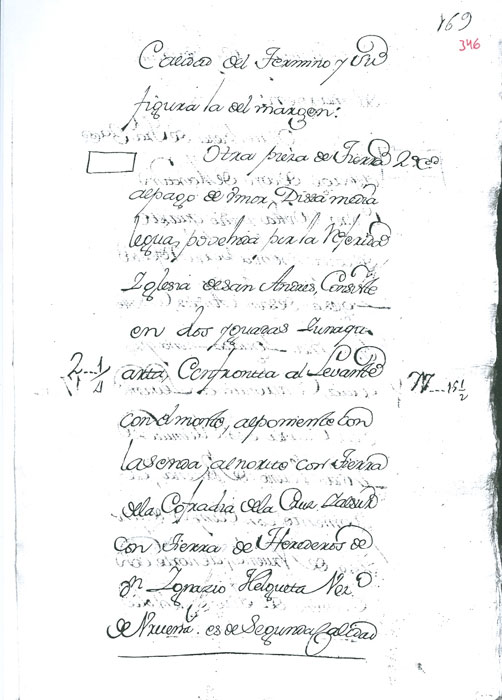 169
346
Calidad del Termino y su
figura la del margen.
Otra pieza de Tierra
al pago de Mor, Dista media
legua, posehida por la referida
Iglesia de san Andres, Consiste
en dos yguazas y una qu-
arta, Confronta al Levante
2 1/4
con el monte, al poniente con
la senda, al norte con Tierra
de la Cofradia de la Cruz, y al sur
con Tierra de Herederos de
Dn Ignazio Helgueta Vez.o
de es de Segunda Calidad